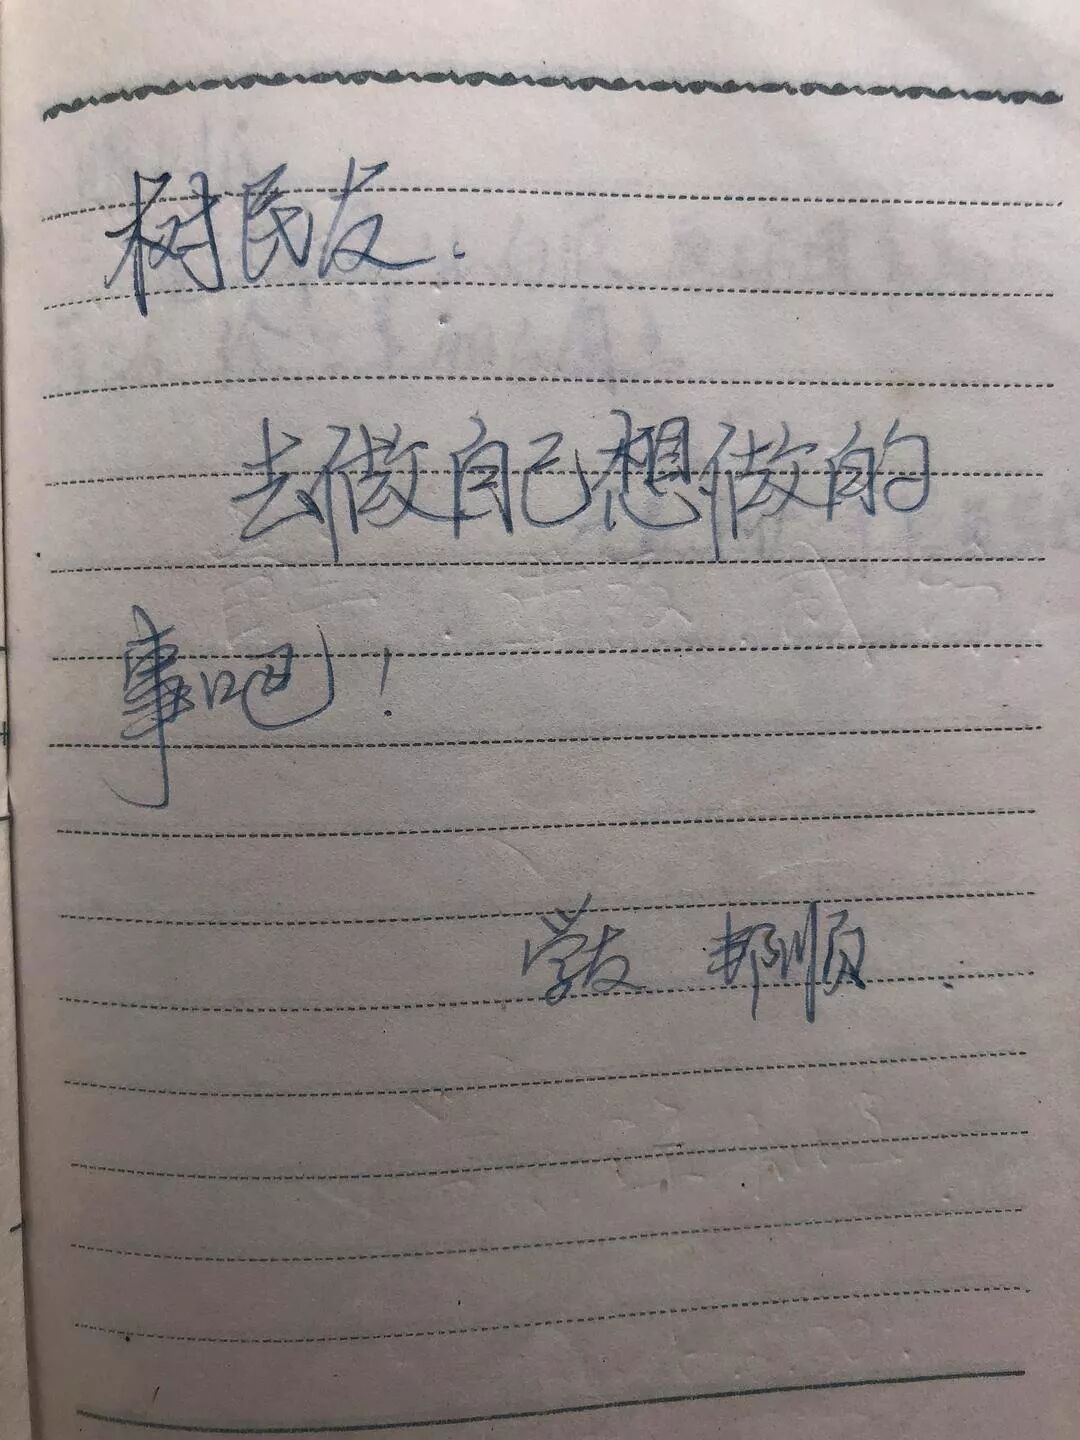 树民友:
去做自己想做的
事吧!
学友 邦顺